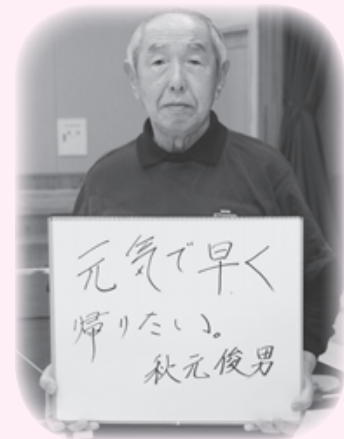 元気で早く
帰りたい。
秋元俊男